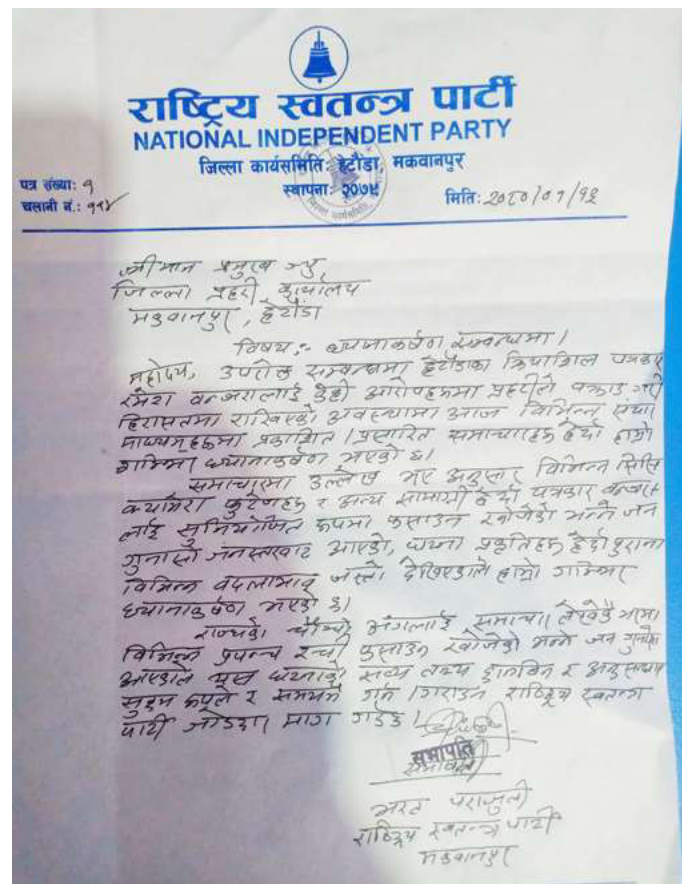 राष्ट्रिय स्वतन्त्र पार्टी
NATIONAL INDEPENDENT PARTY
जिल्ला कार्यसमिति हेटौंडा, मकवानपुर
स्थापना: २०७९
पत्र संख्या: १
चलानी नं.: ११४
मिति: २०८०/०१/१६
श्रीमान प्रमुख ज्यु
जिल्ला प्रहरी कार्यालय
मकवानपुर, हेटौंडा
विषय:- ध्यानाकर्षण सम्बन्धमा।
महोदय, उपरोक्त सम्बन्धमा हेटौंडाका क्रियाशिल पत्रकार
रमेश वन्जरालाई केही आरोपहरुमा प्रहरीले पक्राउ गरी
हिरासतमा राखिएको अवस्थामा आज विभिन्न संचार
माध्यमहरुमा प्रकाशित/प्रसारित समाचारहरु हेर्दा हाम्रो
गम्भिर ध्यानाकर्षण भएको छ।
समाचारमा उल्लेख भए अनुसार विभिन्न सिसि
क्यामेरा फुटेजहरु र अन्य सामाग्री हेर्दा पत्रकार
लाई सुनियोजित रुपमा फसाउन खोजेको भन्ने जन
गुनासो जनस्तरबाट आएको, घटना प्रकृतिहरु हेर्दा पुराना
विभिन्न बदलाभाव जस्तो देखिएकाले हाम्रो गम्भिर
ध्यानाकर्षण भएको छ।
राज्यको चौथो अंगलाई समाचार लेखेकै भरमा
विभिन्न प्रपन्च रची फसाउन खोजेको भन्ने जन गुनासो
आएकोले यस घटनाको सत्य तथ्य छानविन र अनुसन्धान
सुक्ष्म रुपले र समयमै गर्न/गराउन राष्ट्रिय स्वतन्त्र
पार्टी जोडदार माग गर्दछ।
सभापति
सभापति
भरत पराजुली
राष्ट्रिय स्वतन्त्र पार्टी
मकवानपुर